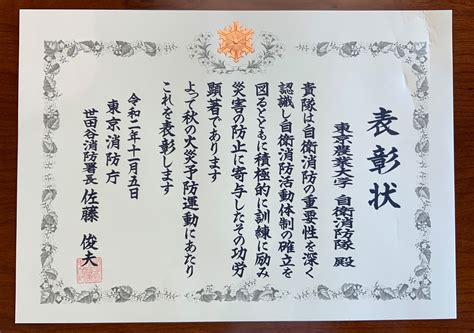 表彰状
東京農業大学 自衛消防隊 殿
貴隊は自衛消防の重要性を深く
認識し自衛消防活動体制の確立を
図るとともに積極的に訓練に励み
災害の防止に寄与したその功労
顕著であります
よって秋の火災予防運動にあたり
これを表彰します
令和二年十一月五日
東京消防庁
世田谷消防署長 佐藤 俊夫